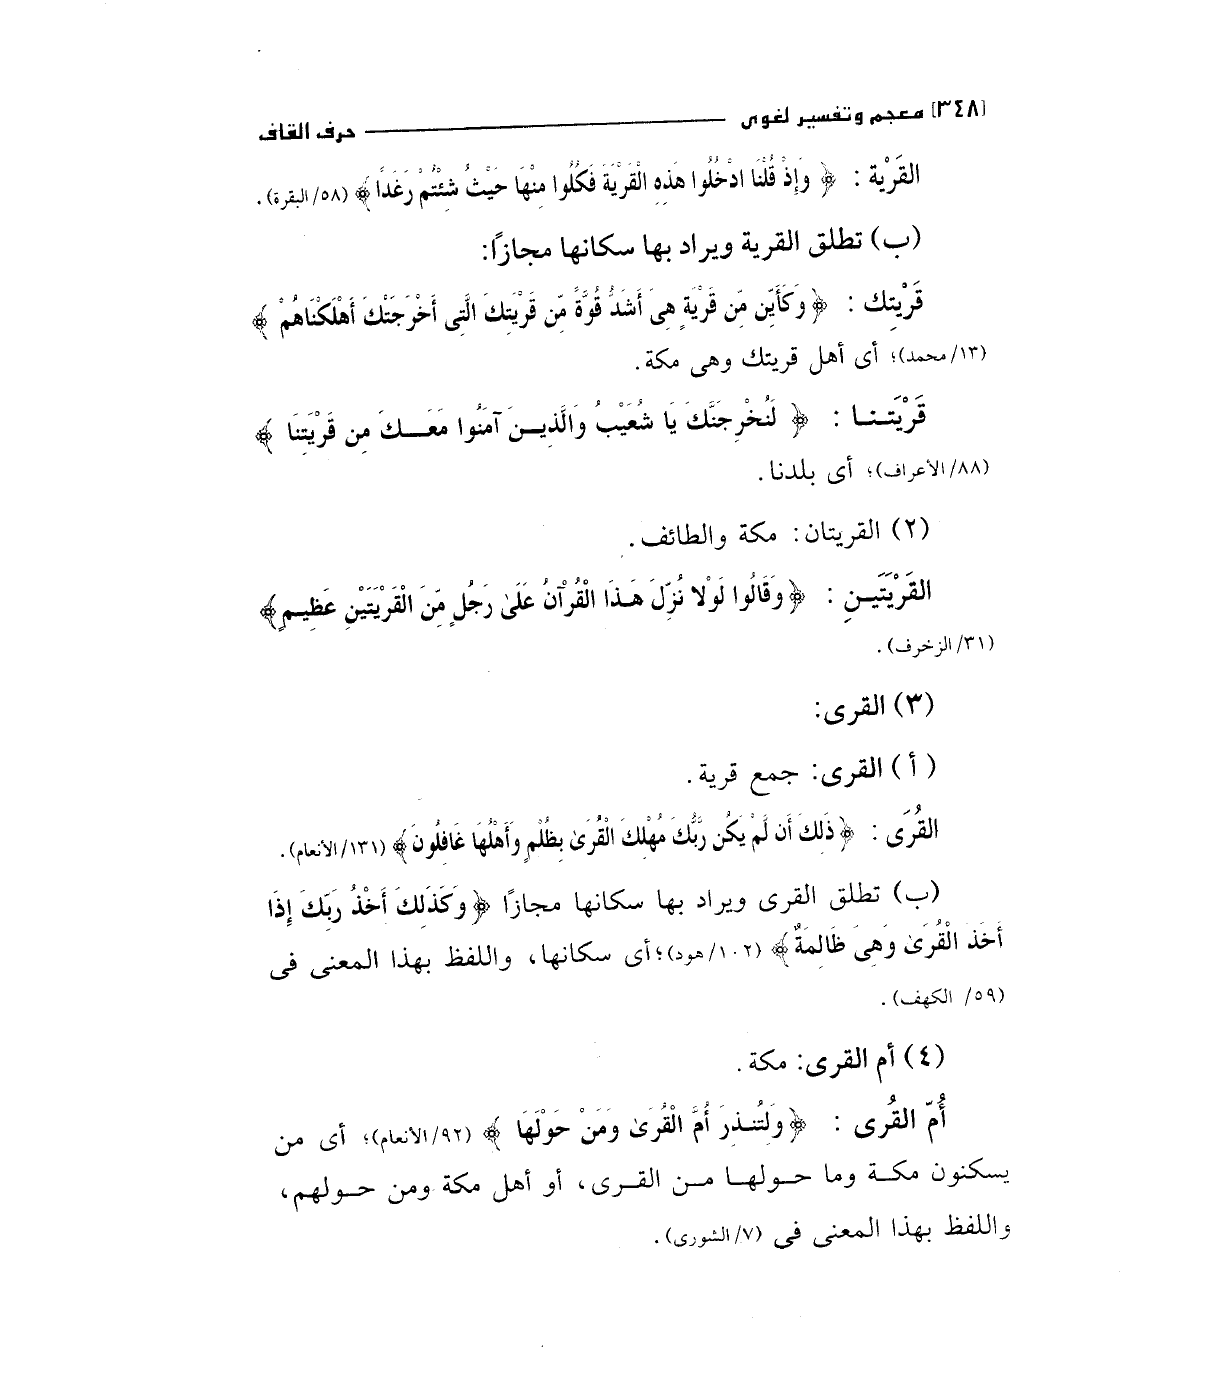 [٣٤٨] معجم وتفسير لغوى حرف القاف
القَرْيَة : ﴿ وَإِذْ قُلْنَا ادْخُلُوا هَذِهِ الْقَرْيَةَ فَكُلُوا مِنْهَا حَيْثُ شِئْتُمْ رَغَدًا ﴾ (٥٨/ البقرة).
(ب) تطلق القرية ويراد بها سكانها مجازًا:
قَرْيتِك : ﴿ وَكَأَيِّن مِّن قَرْيَةٍ هِىَ أَشَدُّ قُوَّةً مِّن قَرْيَتِكَ الَّتِى أَخْرَجَتْكَ أَهْلَكْنَاهُمْ ﴾
(١٣/ محمد)؛ أى أهل قريتك وهى مكة.
قَرْيَتـنـا : ﴿ لَنُخْرِجَنَّكَ يَا شُعَيْبُ وَالَّذِيـنَ آمَنُوا مَعَـــكَ مِن قَرْيَتِنَا ﴾
(٨٨/ الأعراف)؛ أى بلدنا.
(٢) القريتان: مكة والطائف.
القَرْيَتَيـنِ : ﴿ وَقَالُوا لَوْلا نُزِّلَ هَـذَا الْقُرْآنُ عَلَىٰ رَجُلٍ مِّنَ الْقَرْيَتَيْنِ عَظِيـمٍ ﴾
(٣١/ الزخرف).
(٣) القرى:
( أ ) القرى: جمع قرية.
القُرَى : ﴿ ذَلِكَ أَن لَّمْ يَكُن رَّبُّكَ مُهْلِكَ الْقُرَىٰ بِظُلْمٍ وَأَهْلُهَا غَافِلُونَ ﴾ (١٣١/ الأنعام).
(ب) تطلق القرى ويراد بها سكانها مجازًا ﴿ وَكَذَلِكَ أَخْذُ رَبِّكَ إِذَا
أَخَذَ الْقُرَىٰ وَهِىَ ظَالِمَةٌ ﴾ (١٠٢/ هود)؛ أى سكانها، واللفظ بهذا المعنى فى
(٥٩/ الكهف).
(٤) أم القرى: مكة.
أُمّ القُرى : ﴿ وَلِتُنـذِرَ أُمَّ الْقُرَىٰ وَمَنْ حَوْلَهَا ﴾ (٩٢/ الأنعام)؛ أى من
يسكنون مكــة وما حــولهــا مــن القــرى، أو أهل مكة ومن حــولهم،
واللفظ بهذا المعنى فى (٧/ الشورى).